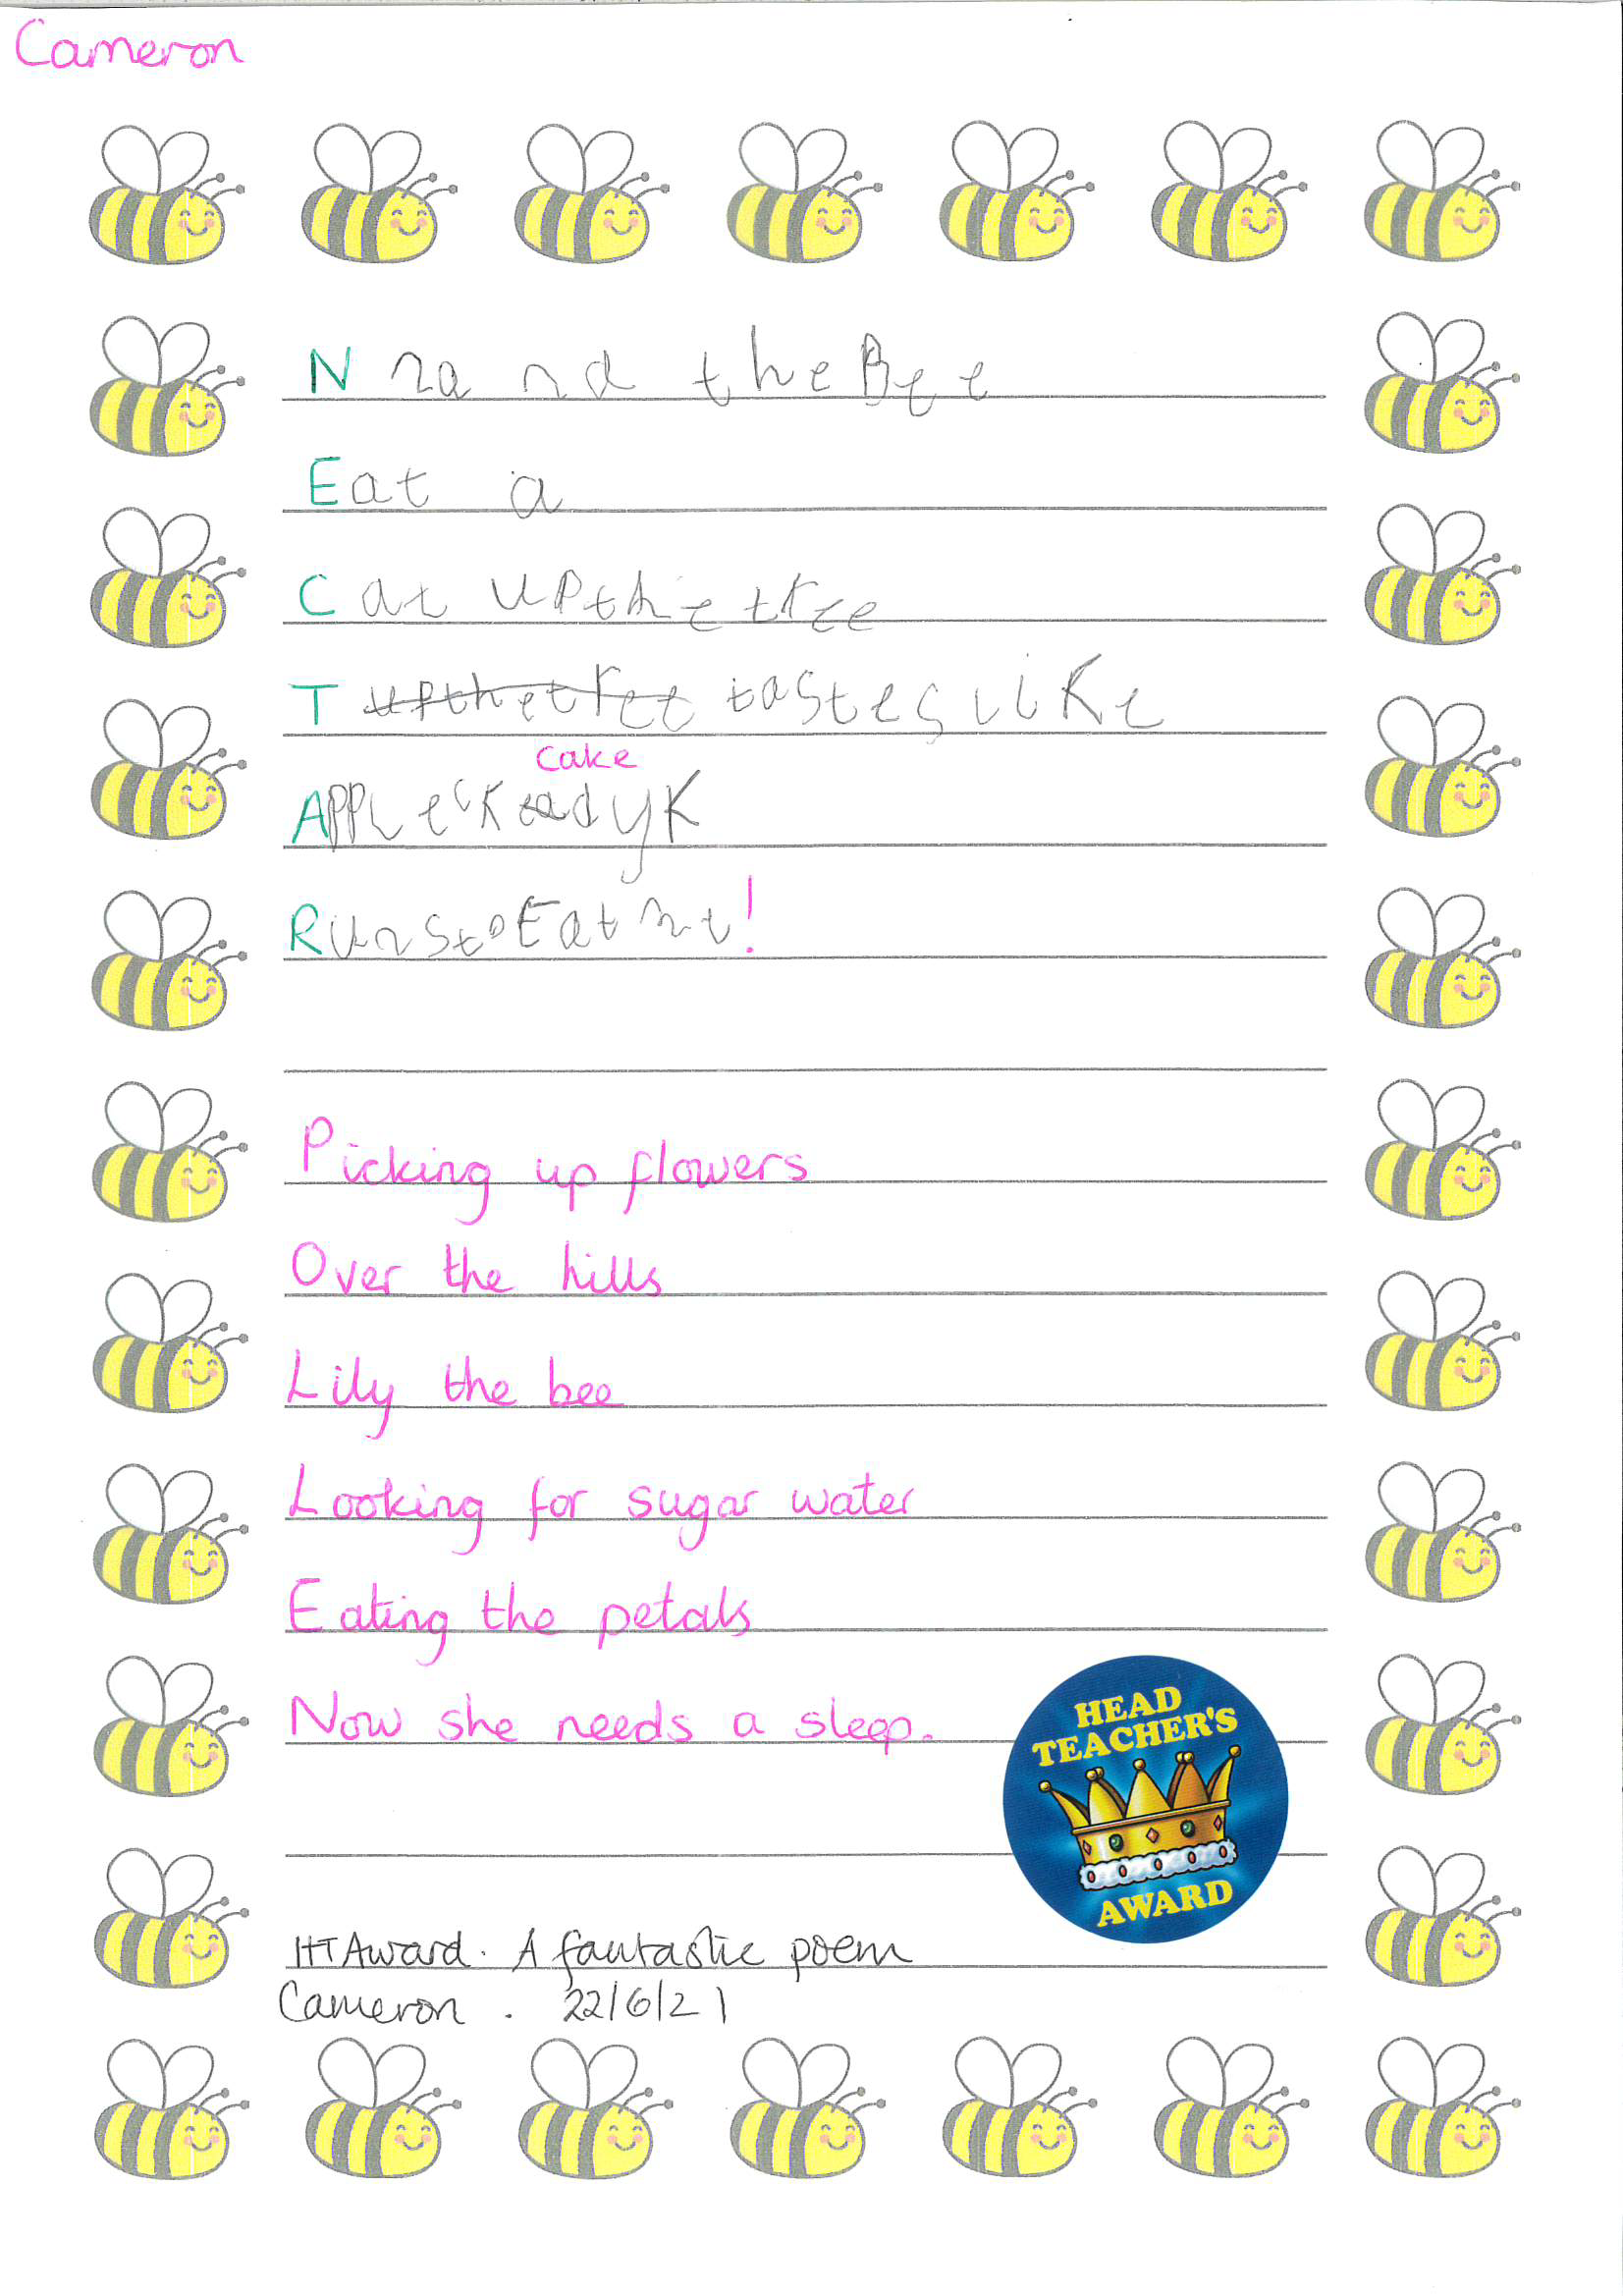 Cameron
N nand theBee
Eat a
Cat upthetree
T upthetree tasteslike
cake
Apple
RunstoEat
!
Picking up flowers
Over the hills
Lily the bee
Looking for sugar water
Eating the petals
Now she needs a sleep.
HEAD
TEACHER'S
AWARD
HT Award. A fantastic poem
Cameron. 22/6/21